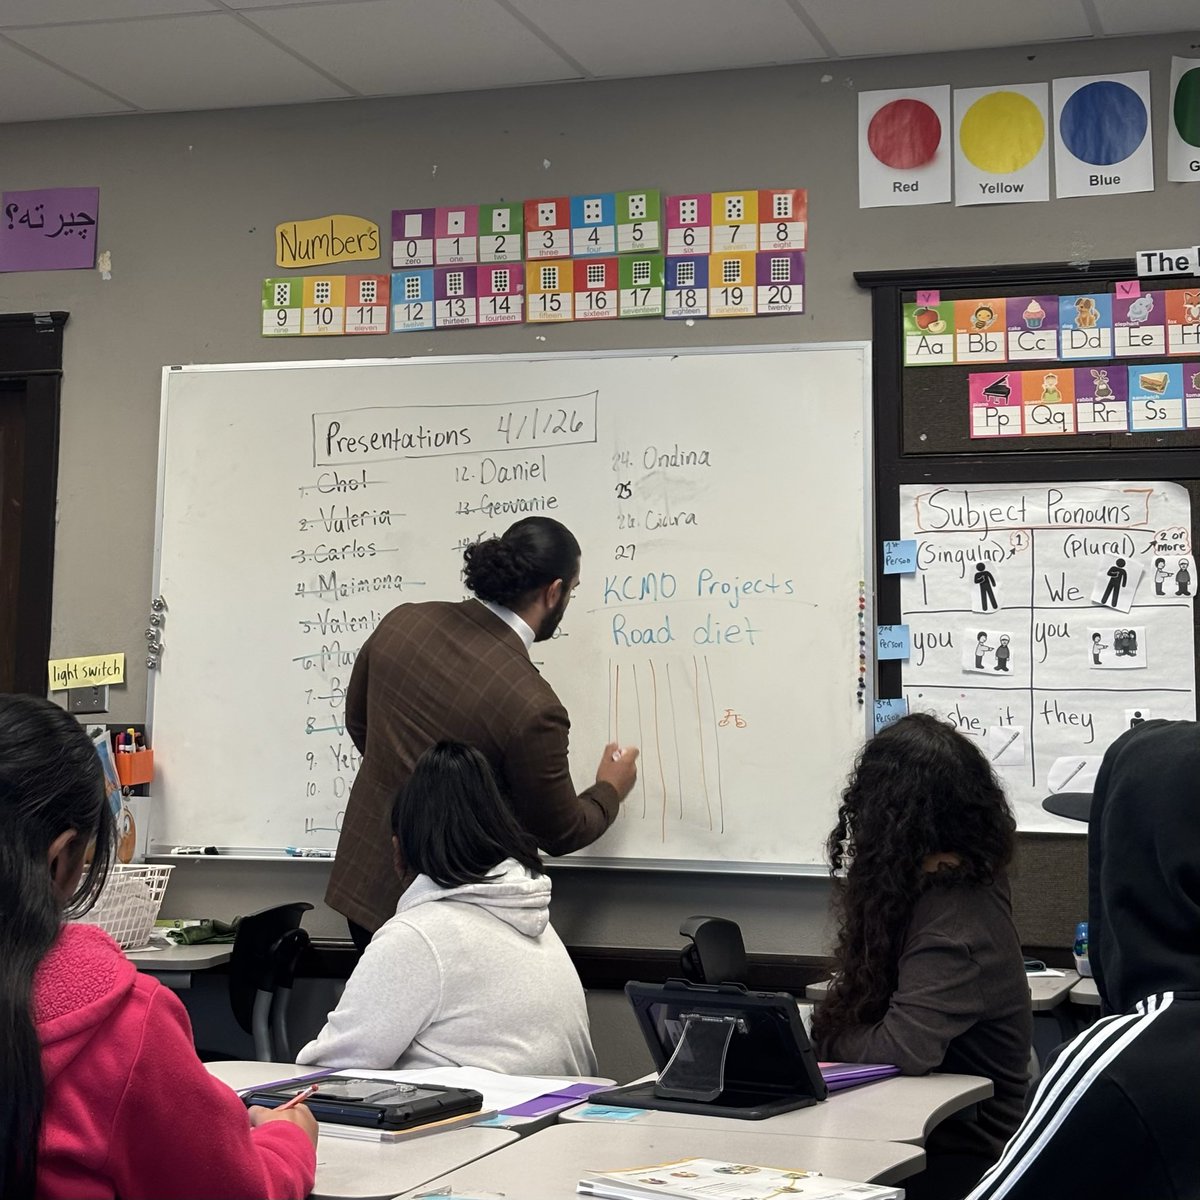 Red
Yellow
Blue
چیرته؟
Numbers
0 1 2 3 4 5 6 7 8
zero one two three four five six seven eight
9 10 11 12 13 14 15 16 17 18 19 20
nine ten eleven twelve thirteen fourteen fifteen sixteen seventeen eighteen nineteen twenty
The
Aa Bb Cc Dd Ee
Pp Qq Rr Ss
Presentations 4/1/26
1. Chol
2. Valeria
3. Carlos
4. Maimona
5. Valenti
6.
7.
8.
9.
10.
11.
12. Daniel
13. Geovanie
24. Ondina
25
26. Ciara
27
KCMO Projects
Road diet
light switch
Subject Pronouns
1st Person
(Singular) 1
(Plural) 2 or more
I
We
2nd Person
you
you
3rd Person
she, it
they